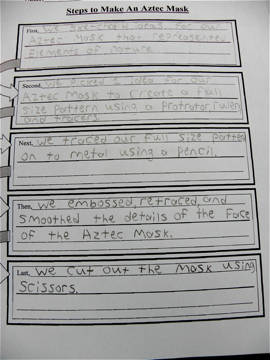 Steps to Make An Aztec Mask
First, we sketched ideas for our
Aztec Mask that represented
Elements of Nature.
Second, we picked 1 idea for our
Aztec Mask to create a full
size pattern using a protrator, ruler,
and tracers.
Next, we traced our full size patted
on to metal using a pencil.
Then, we embossed, retraced, and
smoothed the details of the face
of the Aztec Mask.
Last, we cut out the mask using
Scissors.